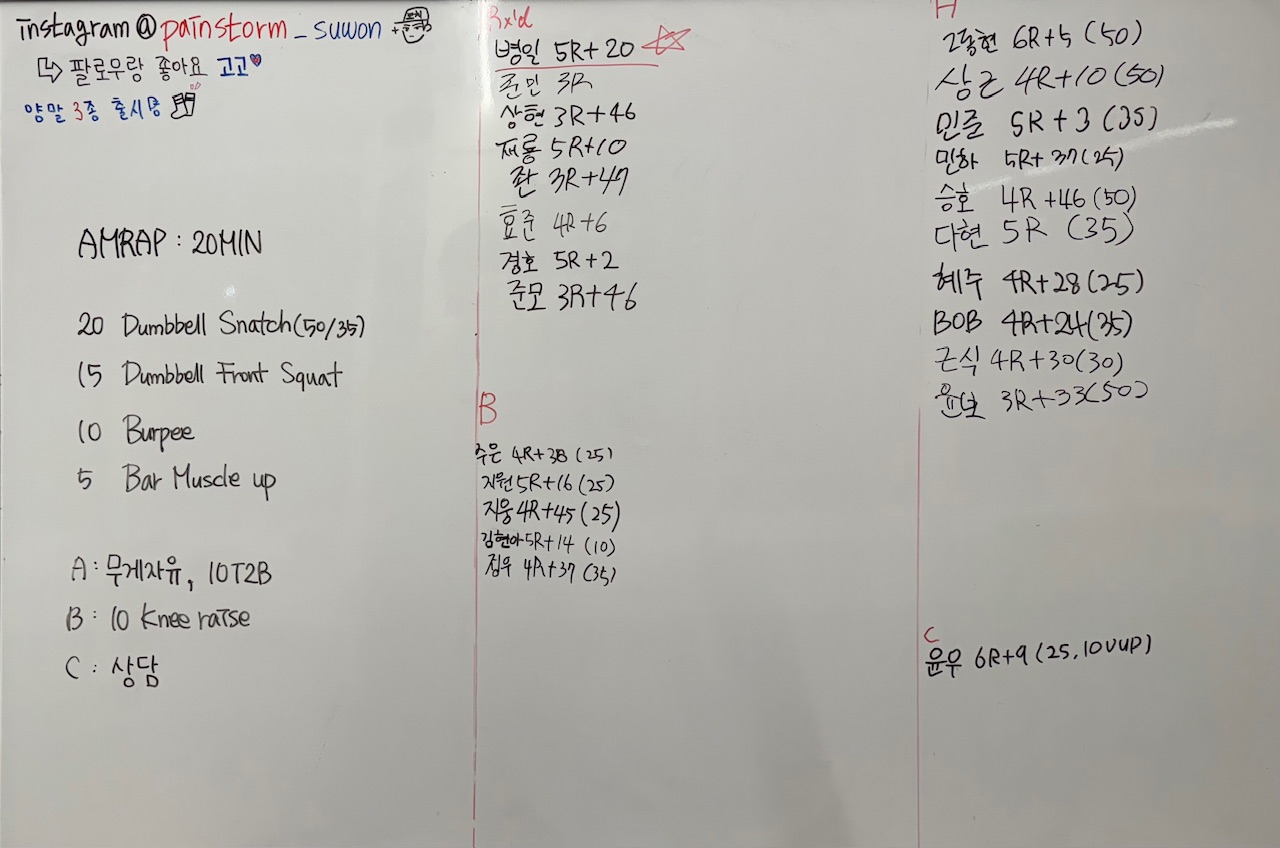 instagram @painstorm_suwon +
팔로우랑 좋아요 고고
양말 3종 출시중
AMRAP : 20MIN
20 Dumbbell Snatch (50/35)
15 Dumbbell Front Squat
10 Burpee
5 Bar Muscle up
A : 무게자유, 10T2B
B : 10 Knee raise
C : 상담
Rx'd
병일 5R+20
준민 3R
상현 3R+46
재룡 5R+10
좐 3R+47
효준 4R+6
경호 5R+2
준모 3R+46
B
주은 4R+38 (25)
지원 5R+16 (25)
지웅 4R+45 (25)
김현아 5R+14 (10)
정우 4R+37 (35)
A
고동현 6R+5 (50)
상근 4R+10 (50)
민준 5R+3 (35)
민하 5R+37 (25)
승호 4R+46 (50)
다현 5R (35)
혜주 4R+28 (25)
BOB 4R+24 (35)
근식 4R+30 (30)
3R+33 (50)
C
윤우 6R+9 (25, 10VUP)